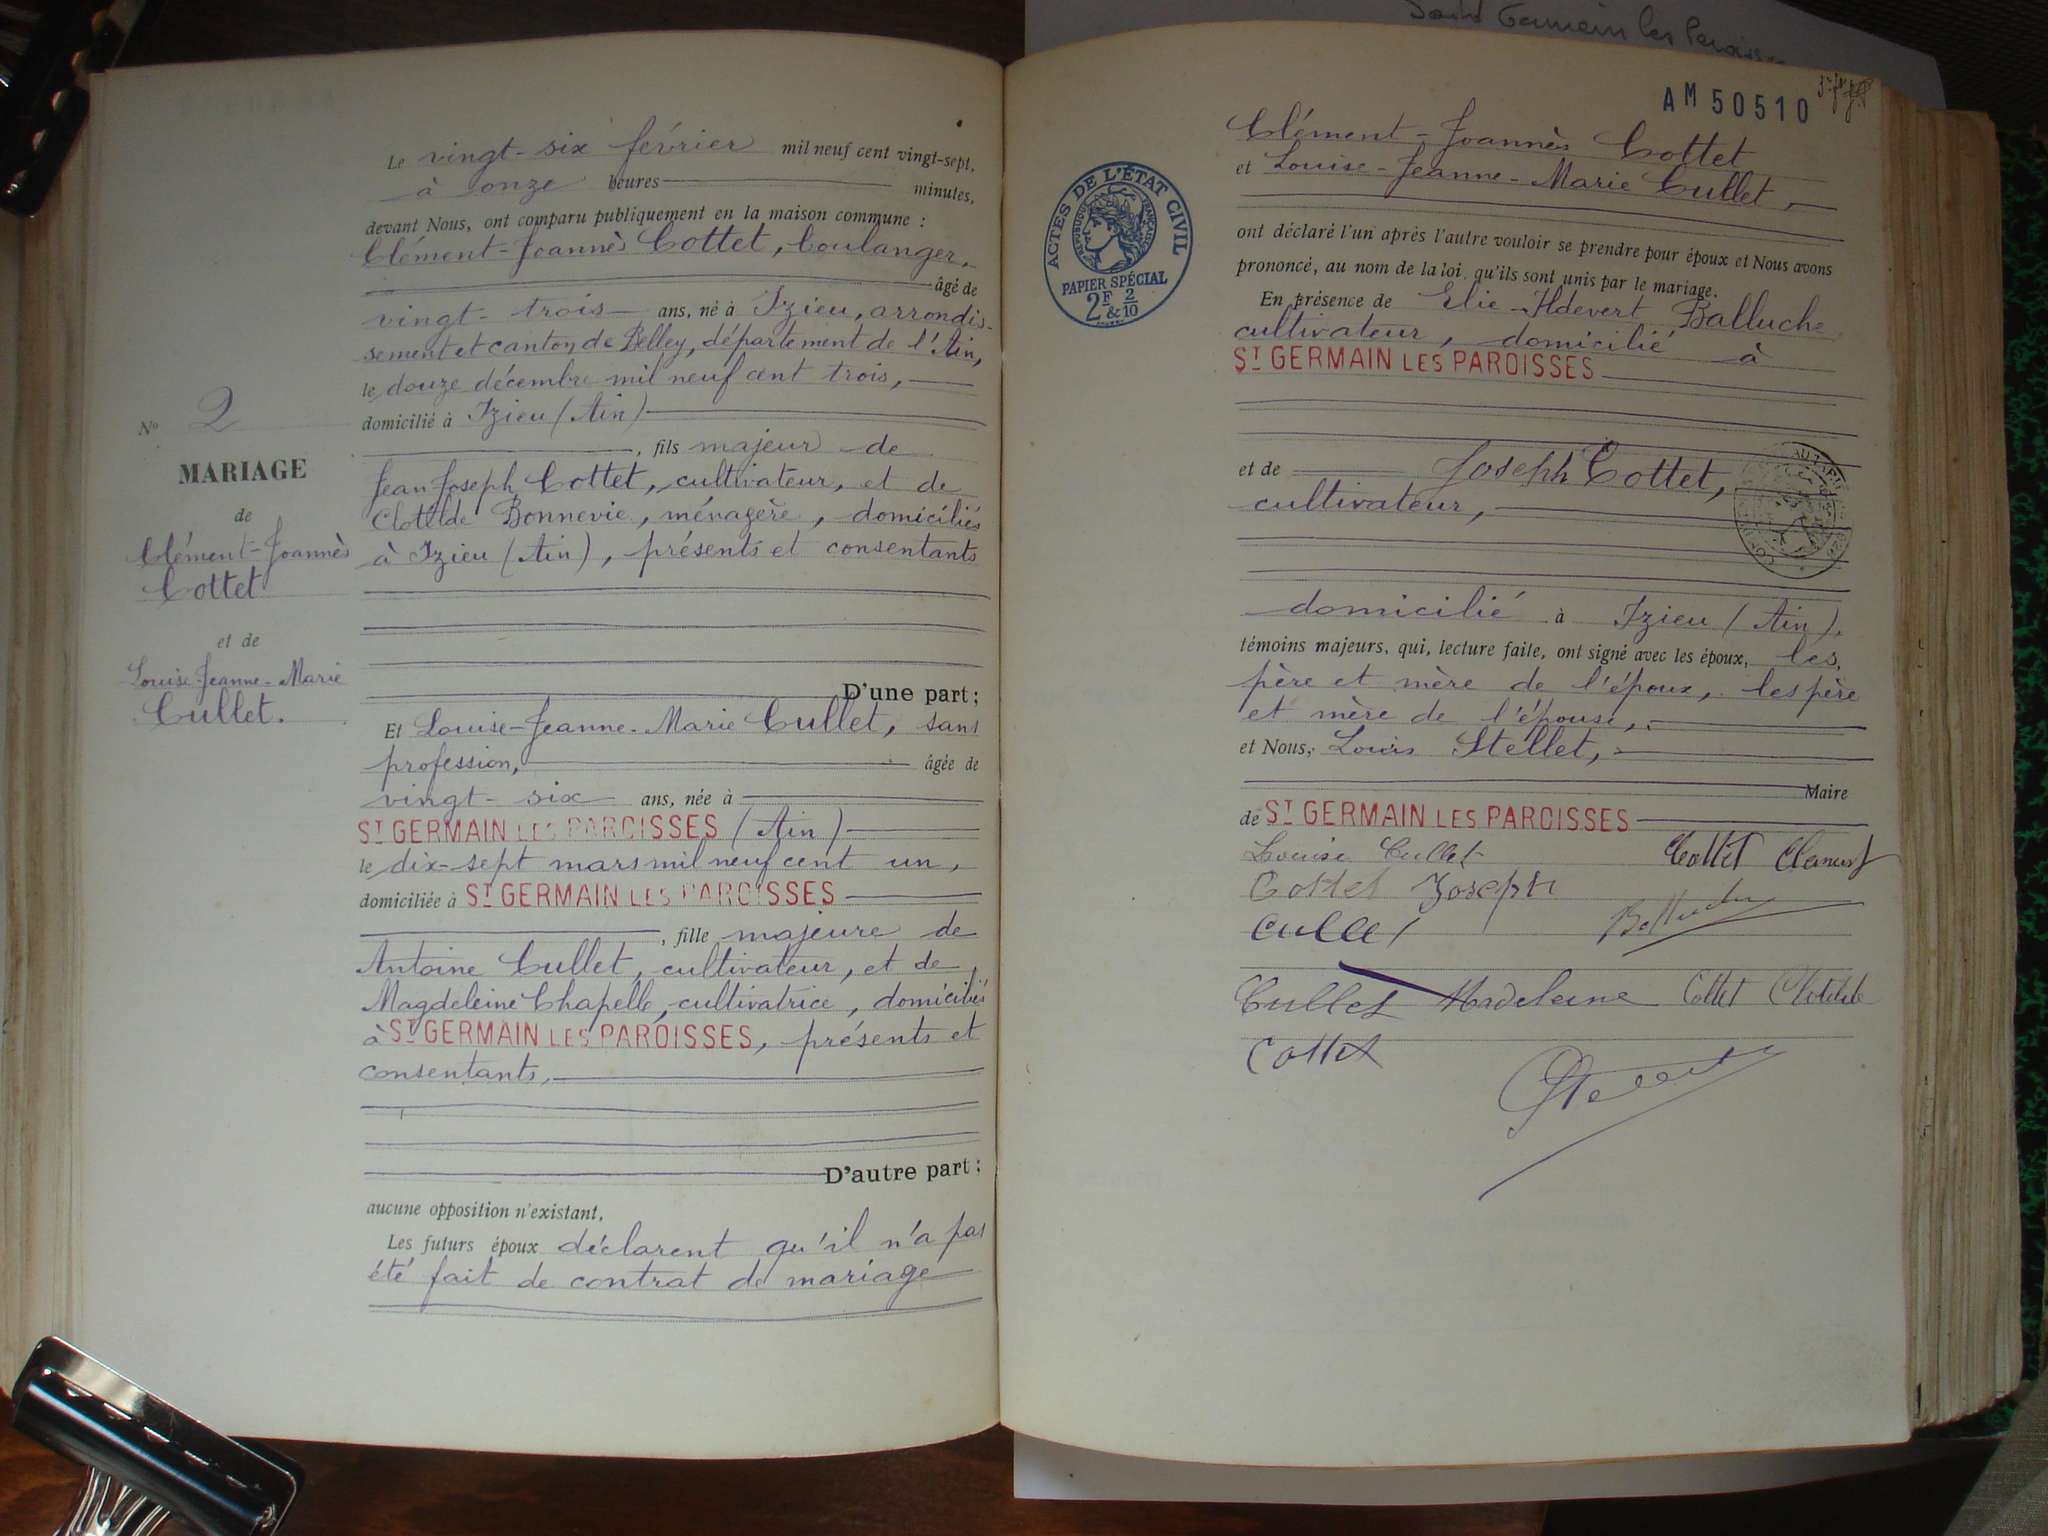 Le vingt-six février mil neuf cent vingt-sept,
à onze heures minutes,
devant Nous, ont comparu publiquement en la maison commune :
Clément-Joannès Cottet, boulanger,
âgé de
vingt-trois ans, né à Izieu, arrondis-
sement et canton de Belley, département de l'Ain,
le douze décembre mil neuf cent trois,
domicilié à Izieu (Ain)
, fils majeur de
Jean Joseph Cottet, cultivateur, et de
Clotilde Bonnevie, ménagère, domiciliés
à Izieu (Ain), présents et consentants
D'une part ;
Et Louise-Jeanne-Marie Cullet, sans
profession, âgée de
vingt-six ans, née à
ST GERMAIN LES PAROISSES (Ain)
le dix-sept mars mil neuf cent un,
domiciliée à ST GERMAIN LES PAROISSES
, fille majeure de
Antoine Cullet, cultivateur, et de
Magdeleine Chapelle, cultivatrice, domiciliés
à ST GERMAIN LES PAROISSES, présents et
consentants,
D'autre part ;
aucune opposition n'existant,
Les futurs époux déclarent qu'il n'a pas
été fait de contrat de mariage
No 2
MARIAGE
de
Clément-Joannès
Cottet
et de
Louise-Jeanne-Marie
Cullet.
Saint Germain les Paroisses
AM 50510
ACTES DE L'ÉTAT CIVIL
RÉPUBLIQUE FRANÇAISE
PAPIER SPÉCIAL
2F & 2/10
Clément-Joannès Cottet
et Louise-Jeanne-Marie Cullet,
ont déclaré l'un après l'autre vouloir se prendre pour époux et Nous avons
prononcé, au nom de la loi, qu'ils sont unis par le mariage.
En présence de Elie-Hdevert Balluche
cultivateur, domicilié à
ST GERMAIN LES PAROISSES
et de Joseph Cottet,
cultivateur,
domicilié à Izieu (Ain),
témoins majeurs, qui, lecture faite, ont signé avec les époux, les
père et mère de l'époux, les père
et mère de l'épouse,
et Nous, Louis Stellet,
Maire
de ST GERMAIN LES PAROISSES
Louise Cullet Cottet Clement
Cottet Joseph
Cullet
Cullet Madeleine Cottet Clotilde
Cottet